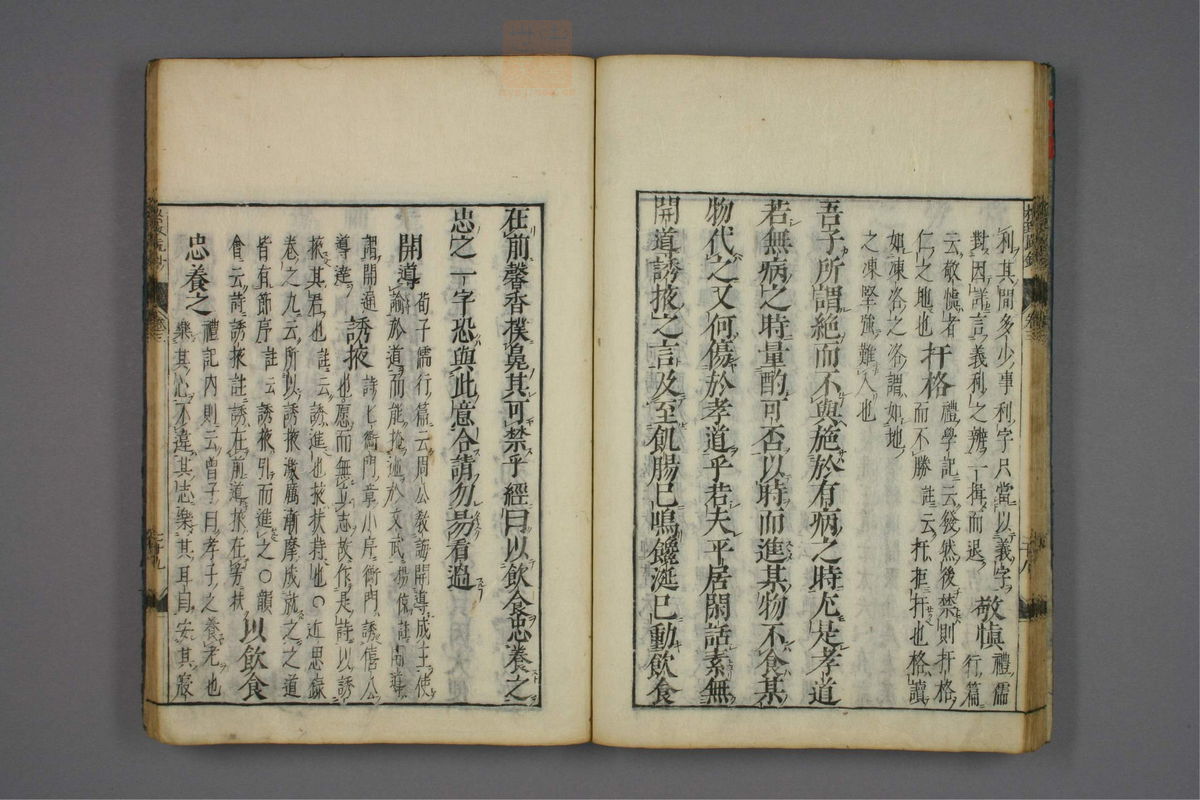 利其間多少事利字只當以義字 敬愼 禮儒行篇
對因詳言義利之辨一揖而退
云敬愼者
仁之地也 扞格 禮學記云發然後禁則扞格而不勝 註云扞拒扞也格讀
如凍洛之洛謂如地
之凍堅強難入也
吾子所謂絶而不與施於有病之時尤是孝道
若無病之時量酌可否以時而進某物不食某
物代之又何傷於孝道乎若夫平居閑話素無
開導誘掖之言及至飢腸已鳴饞涎已動飲食
在前馨香撲鼻其可禁乎經曰以飲食忠養之
忠之一字恐與此意合請勿易看過
開導 荀子儒行篇云周公敎誨開導成王使
諭於道而能揜迹於文武楊倞註
開通
導達 誘掖 詩衡門章小序衡門誘僖公
也愿而無立志故作是詩以誘
掖其君也註云誘進也掖扶持也○近思錄
卷之九云所以誘掖激厲漸摩成就之之道
皆有節序註云誘掖引而進之○韻
會云誘掖註誘在前道掖在旁扶 以飲食
忠養之 禮記内則云曾子曰孝子之養老也
樂其心不違其志樂其耳目安其寢